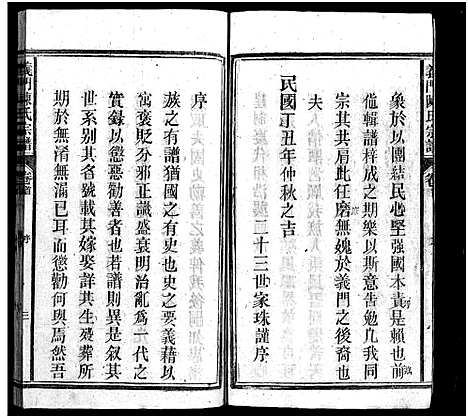 義門陳氏宗譜
象於以團結民心堅強國本責是賴也前
脩輯譜梓成之期樂以斯意告勉凡我同
宗其共肩此任磨無媿於義門之後裔也
夫
民國丁丑年仲秋之吉
二十三世家珠謹序
序
族之有譜猶國之有史也史之要義藉以
寓褒貶分邪正識盛衰明治亂為一代之
實錄以懲惡勸善者也若譜則異是叙其
世系別其名號載其嫁娶詳其生歿葬所
期於無淆無漏已耳而懲勸何與焉然吾
義門陳氏宗譜
序
三